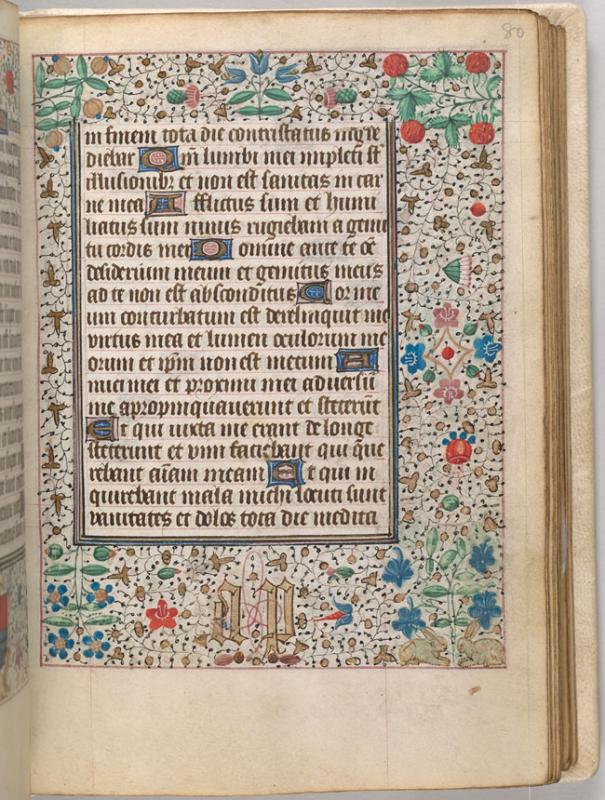 80
in finem tota die contristatus ingre
diebar Qm lumbi mei impleti st
illusionibz et non est sanitas in car
ne mea Afflictus sum et humi
liatus sum nimis rugiebam a gemi
tu cordis mei Domine ante te oe
desiderium meum et gemitus meus
ad te non est absconditus Cor me
um conturbatum est dereliquit me
virtus mea et lumen oculorum me
orum et ipm non est mecum A
mici mei et proximi mei adversu
me apropinquaverunt et steterut
Et qui iuxta me erant de longe
steterunt et vim faciebant qui que
rebant aiam meam Et qui in
quirebant mala michi locuti sunt
vanitates et dolos tota die medita
a p